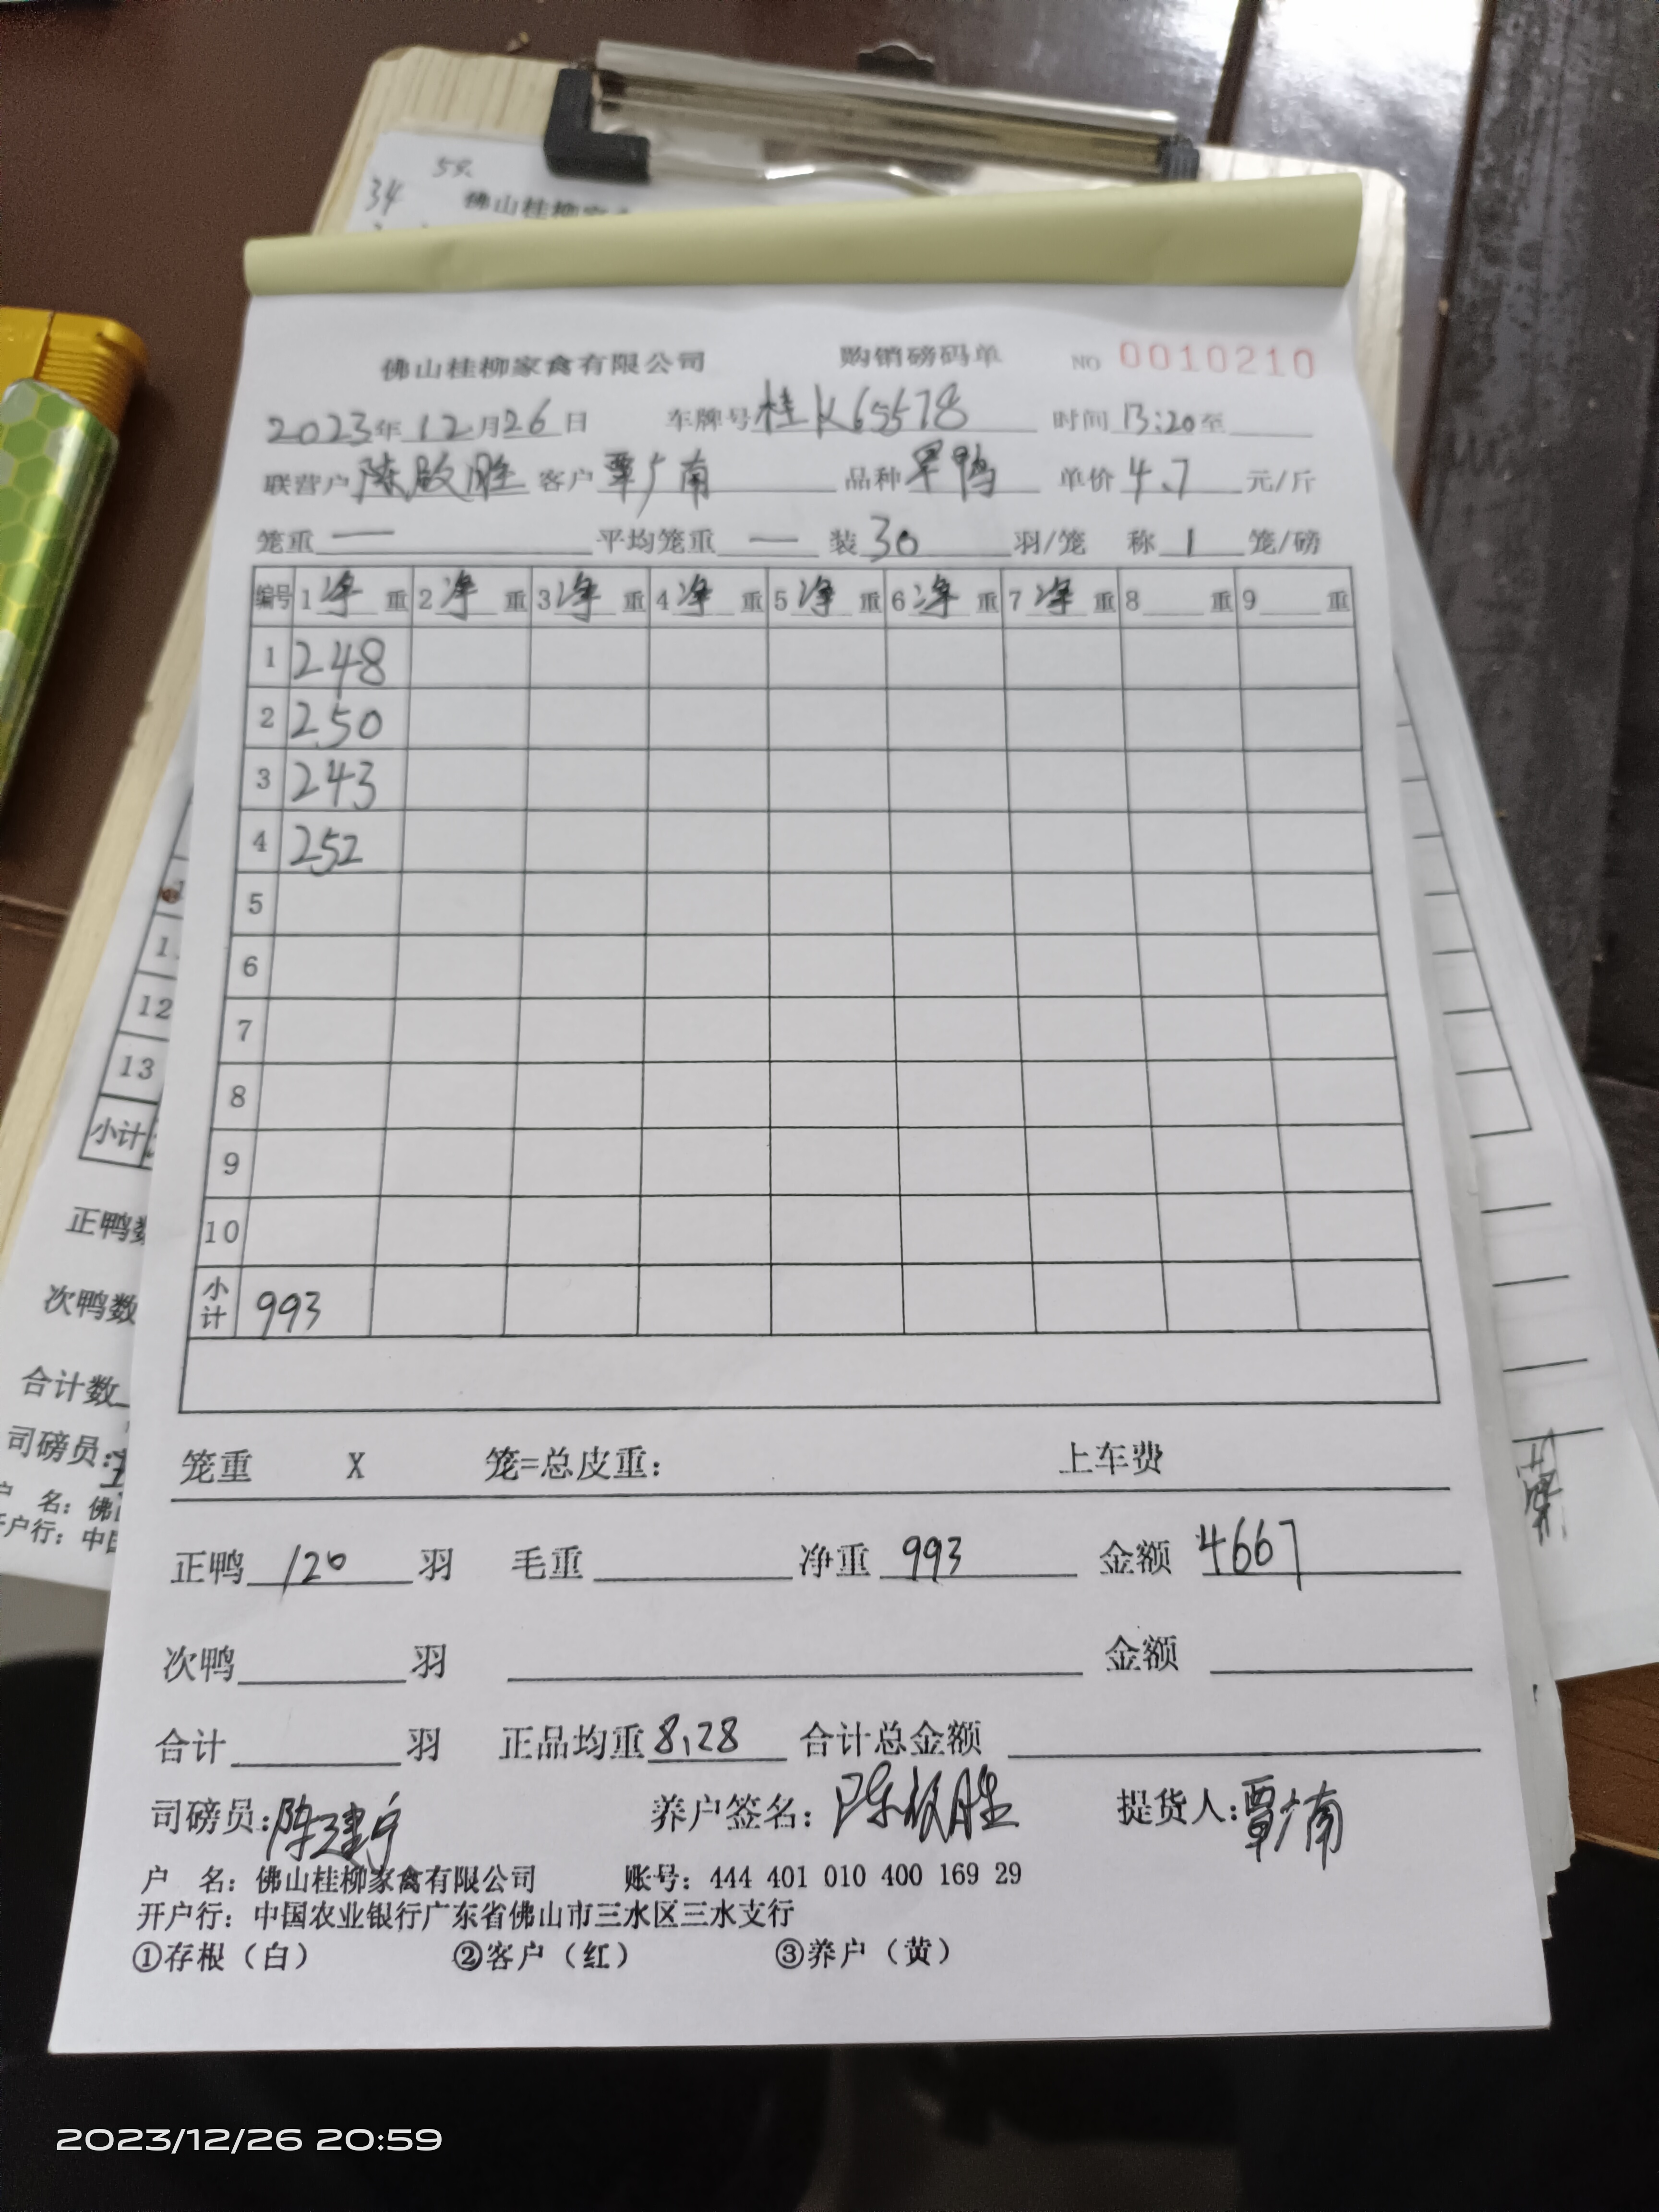 59.
34
佛山桂柳家
佛山桂柳家禽有限公司 购销磅码单 NO 0010210
2023年12月26日 车牌号桂K65578 时间13:20至
联营户陈啟胜 客户覃广南 品种旱鸭 单价4.7元/斤
笼重— 平均笼重— 装30羽/笼 称1笼/磅
编号 1净重 2净重 3净重 4净重 5净重 6净重 7净重 8重 9重
1 248
2 250
3 243
4 252
5
6
7
8
9
10
小计 993
笼重 X 笼=总皮重: 上车费
正鸭120羽 毛重 净重993 金额4667
次鸭 羽 金额
合计 羽 正品均重8.28 合计总金额
司磅员:陈建宁 养户签名:陈啟胜 提货人:覃广南
户 名: 佛山桂柳家禽有限公司 账号: 444 401 010 400 169 29
开户行: 中国农业银行广东省佛山市三水区三水支行
①存根（白） ②客户（红） ③养户（黄）
12
13
小计
正鸭数
次鸭数
合计数
司磅员:
户 名: 佛
开户行: 中
2023/12/26 20:59